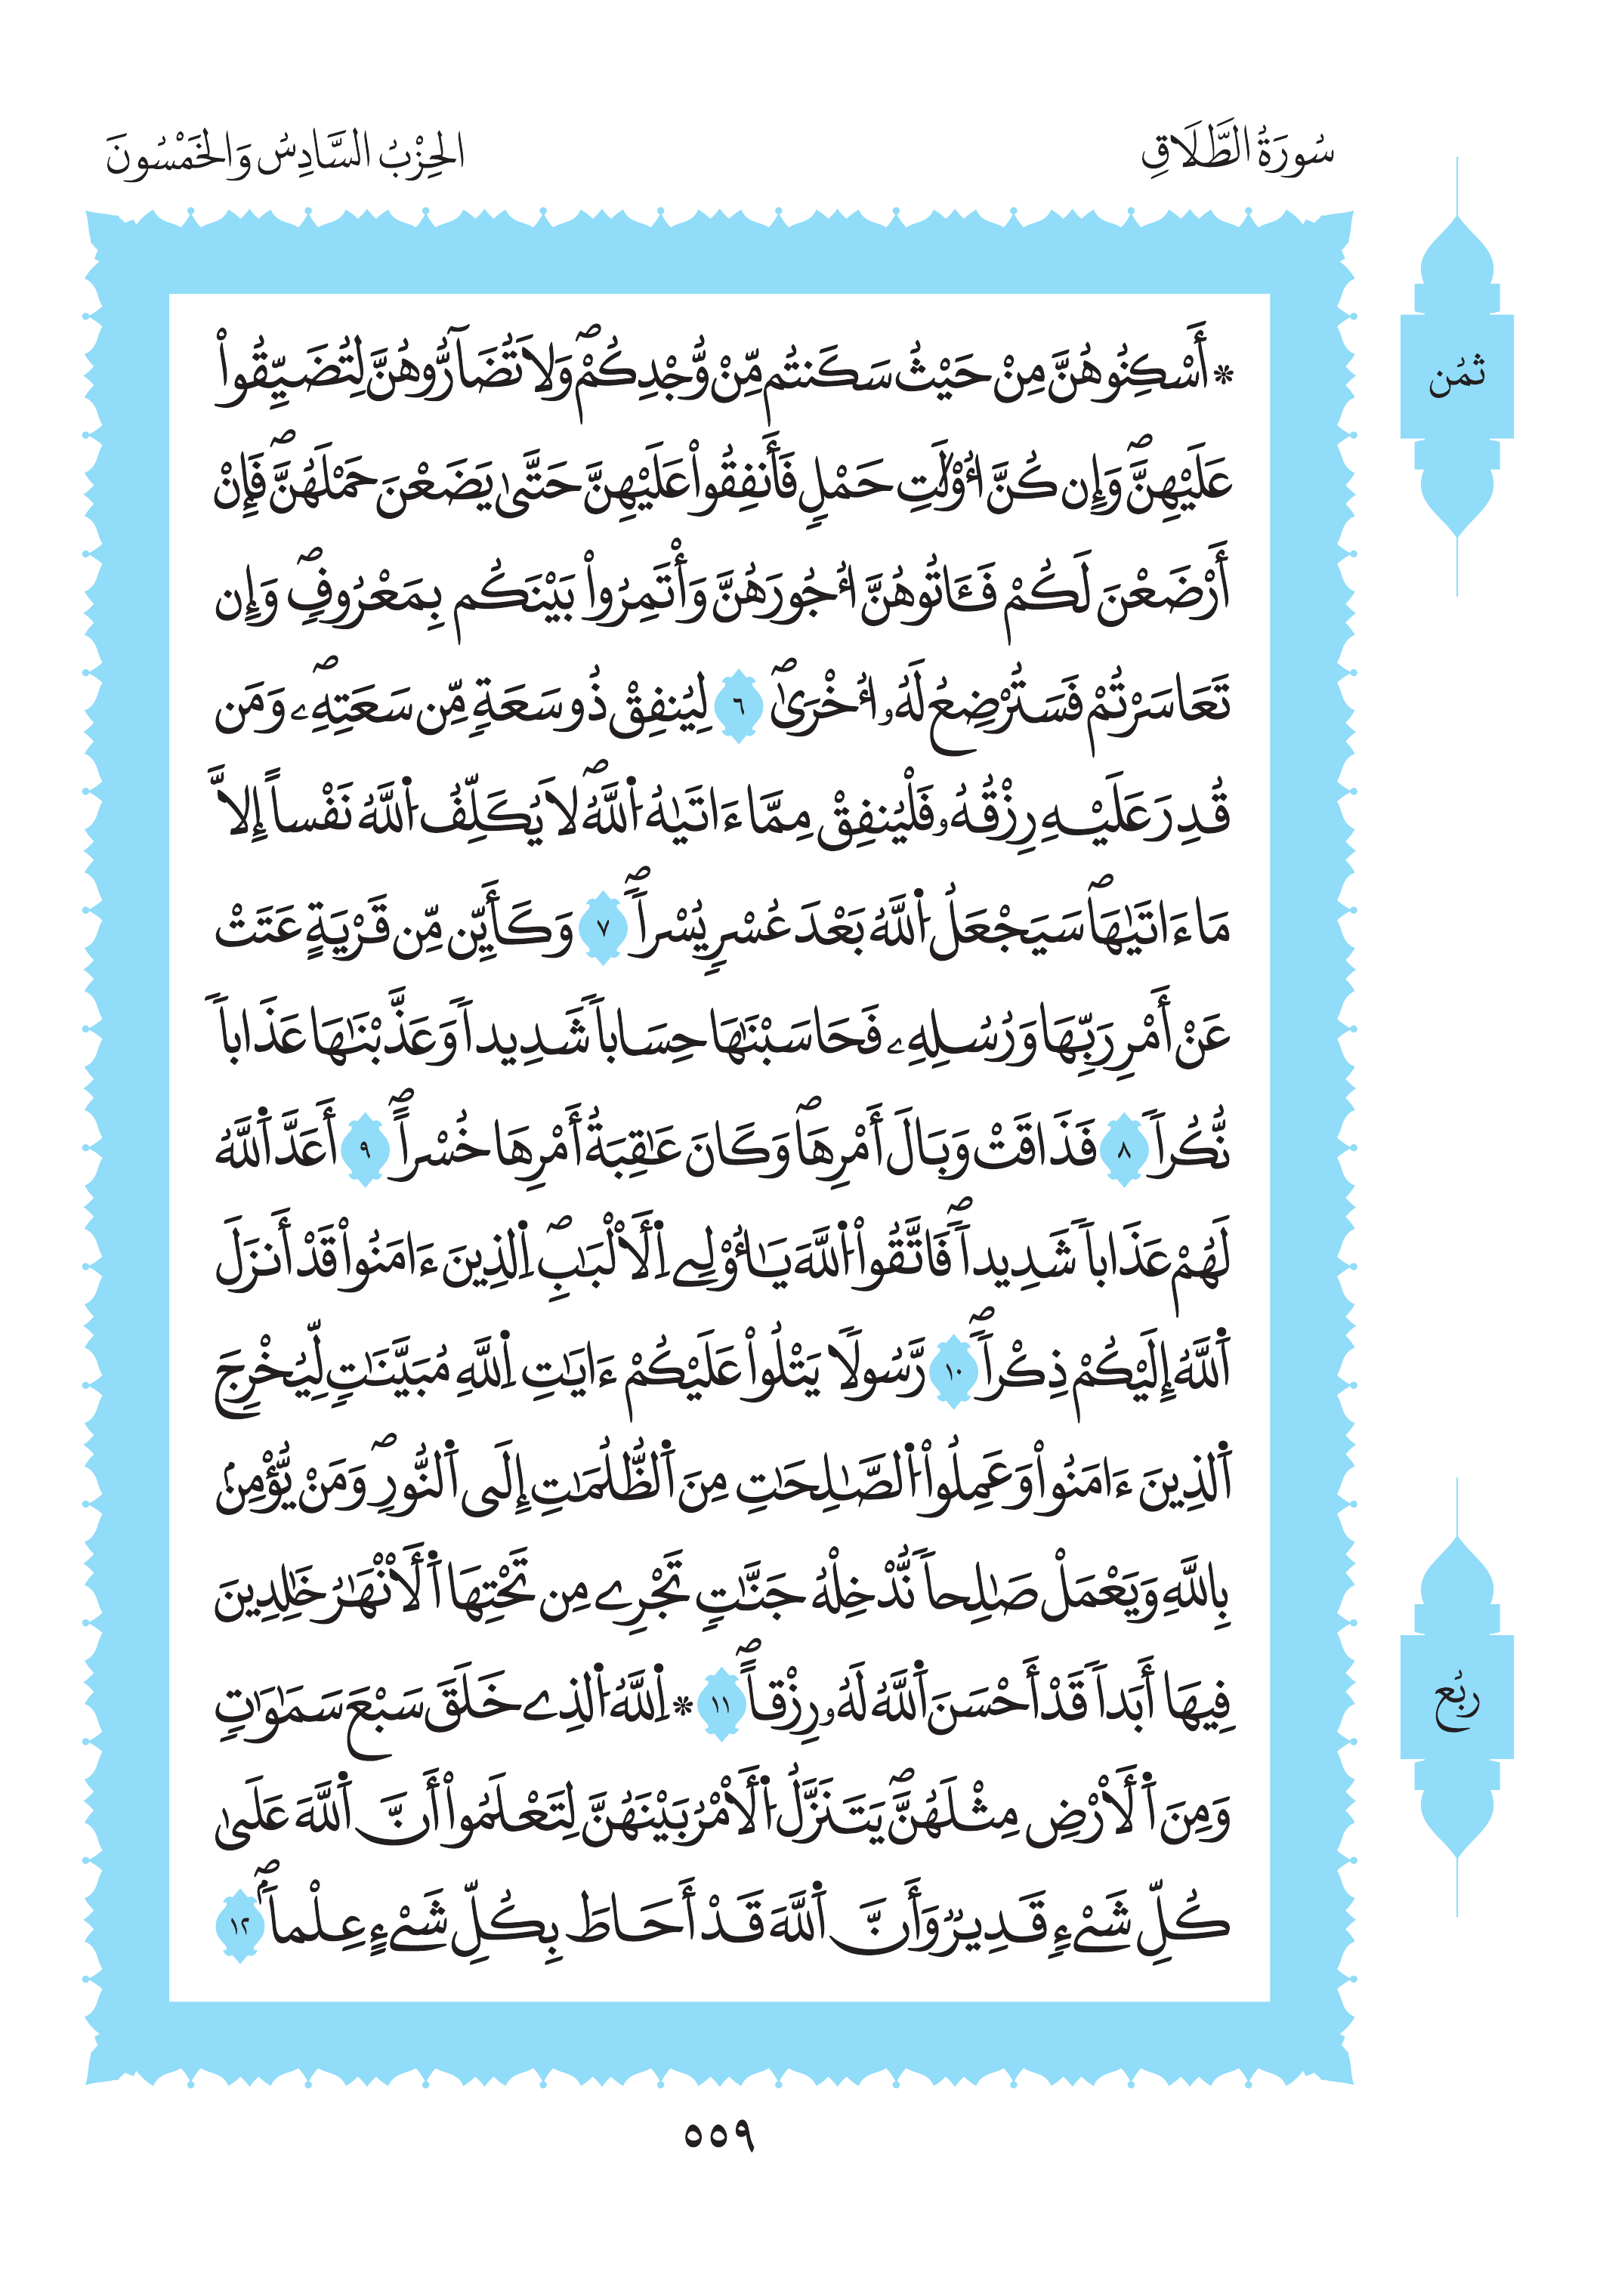 سُورَةُ الطَّلَاقِ
الحِزْبُ السَّادِسُ وَالخَمْسُونَ
* أَسْكِنُوهُنَّ مِنْ حَيْثُ سَكَنتُم مِّنْ وُّجْدِكُمْۖ وَلَا تُضَآرُّوهُنَّ لِتُضَيِّقُواْ
ثمُن
عَلَيْهِنَّۖ وَإِن كُنَّ أُوْلَٰتِ حَمْلٖ فَأَنفِقُواْ عَلَيْهِنَّ حَتَّىٰ يَضَعْنَ حَمْلَهُنَّۖ فَإِنْ
أَرْضَعْنَ لَكُمْ فَـَٔاتُوهُنَّ أُجُورَهُنَّ وَأْتَمِرُواْ بَيْنَكُم بِمَعْرُوفٖۖ وَإِن
تَعَاسَرْتُمْ فَسَتُرْضِعُ لَهُۥ أُخْرَىٰۖ ٦ لِيُنفِقْ ذُو سَعَةٖ مِّن سَعَتِهِۦۖ وَمَن
قُدِرَ عَلَيْهِ رِزْقُهُۥ فَلْيُنفِقْ مِمَّا ءَاتَيٰهُ اُ۬للَّهُۖ لَا يُكَلِّفُ اُ۬للَّهُ نَفْساً إِلَّا
مَا ءَاتَيٰهَاۖ سَيَجْعَلُ اُ۬للَّهُ بَعْدَ عُسْرٖ يُسْراٗۖ ٧ وَكَأَيِّن مِّن قَرْيَةٍ عَتَتْ
عَنْ أَمْرِ رَبِّهَا وَرُسُلِهِۦ فَحَاسَبْنَٰهَا حِسَاباٗ شَدِيداٗ وَعَذَّبْنَٰهَا عَذَاباٗ
نُّكُراٗ ٨ فَذَاقَتْ وَبَالَ أَمْرِهَاۖ وَكَانَ عَٰقِبَةُ أَمْرِهَا خُسْراًۖ ٩ أَعَدَّ اَ۬للَّهُ
لَهُمْ عَذَاباٗ شَدِيداٗۖ فَاتَّقُواْ اُ۬للَّهَ يَٰأُوْلِے اِ۬لَالْبَٰبِۖ اِ۬لذِينَ ءَامَنُواْ قَدْ أَنزَلَ
اَ۬للَّهُ إِلَيْكُمْ ذِكْراٗۖ ١٠ رَّسُولاٗ يَتْلُواْ عَلَيْكُمْ ءَايَٰتِ اِ۬للَّهِ مُبَيَّنَٰتٖ لِّيُخْرِجَ
اَ۬لذِينَ ءَامَنُواْ وَعَمِلُواْ اُ۬لصَّٰلِحَٰتِ مِنَ اَ۬لظُّلُمَٰتِ إِلَى اَ۬لنُّورِۖ وَمَنْ يُّؤْمِنۢ
بِاللَّهِ وَيَعْمَلْ صَٰلِحاٗ نُّدْخِلْهُ جَنَّٰتٖ تَجْرِے مِن تَحْتِهَا اَ۬لَانْهَٰرُ خَٰلِدِينَ
فِيهَا أَبَداٗ قَدْ أَحْسَنَ اَ۬للَّهُ لَهُۥ رِزْقاًۖ ١١ * اِ۬للَّهُ اُ۬لذِے خَلَقَ سَبْعَ سَمَٰوَٰتٖ
ربُع
وَمِنَ اَ۬لَارْضِ مِثْلَهُنَّۖ يَتَنَزَّلُ اُ۬لَامْرُ بَيْنَهُنَّ لِتَعْلَمُواْ أَنَّ اَ۬للَّهَ عَلَىٰ
كُلِّ شَےْءٖ قَدِيرٞ وَأَنَّ اَ۬للَّهَ قَدْ أَحَاطَ بِكُلِّ شَےْءٍ عِلْماَۢۖ ١٢
٥٥٩